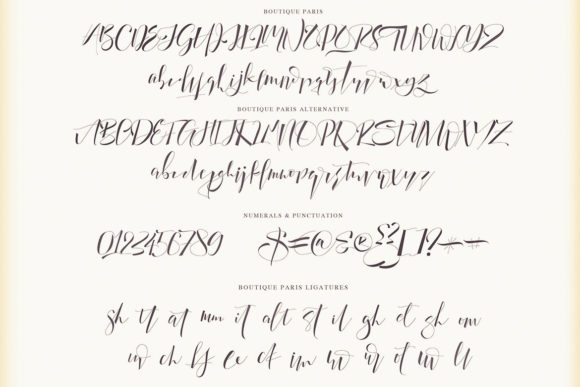 BOUTIQUE PARIS
ABCDEFGHIJKLMNOPQRSTUVWXYZ
abcdefghijklmnopqrstuvwxyz
BOUTIQUE PARIS ALTERNATIVE
ABCDEFGHIJKLMNOPQRSTUVWXYZ
abcdefghijklmnopqrstuvwxyz
NUMERALS & PUNCTUATION
0123456789
BOUTIQUE PARIS LIGATURES
sh tt at mm it alt st il gh et sh om